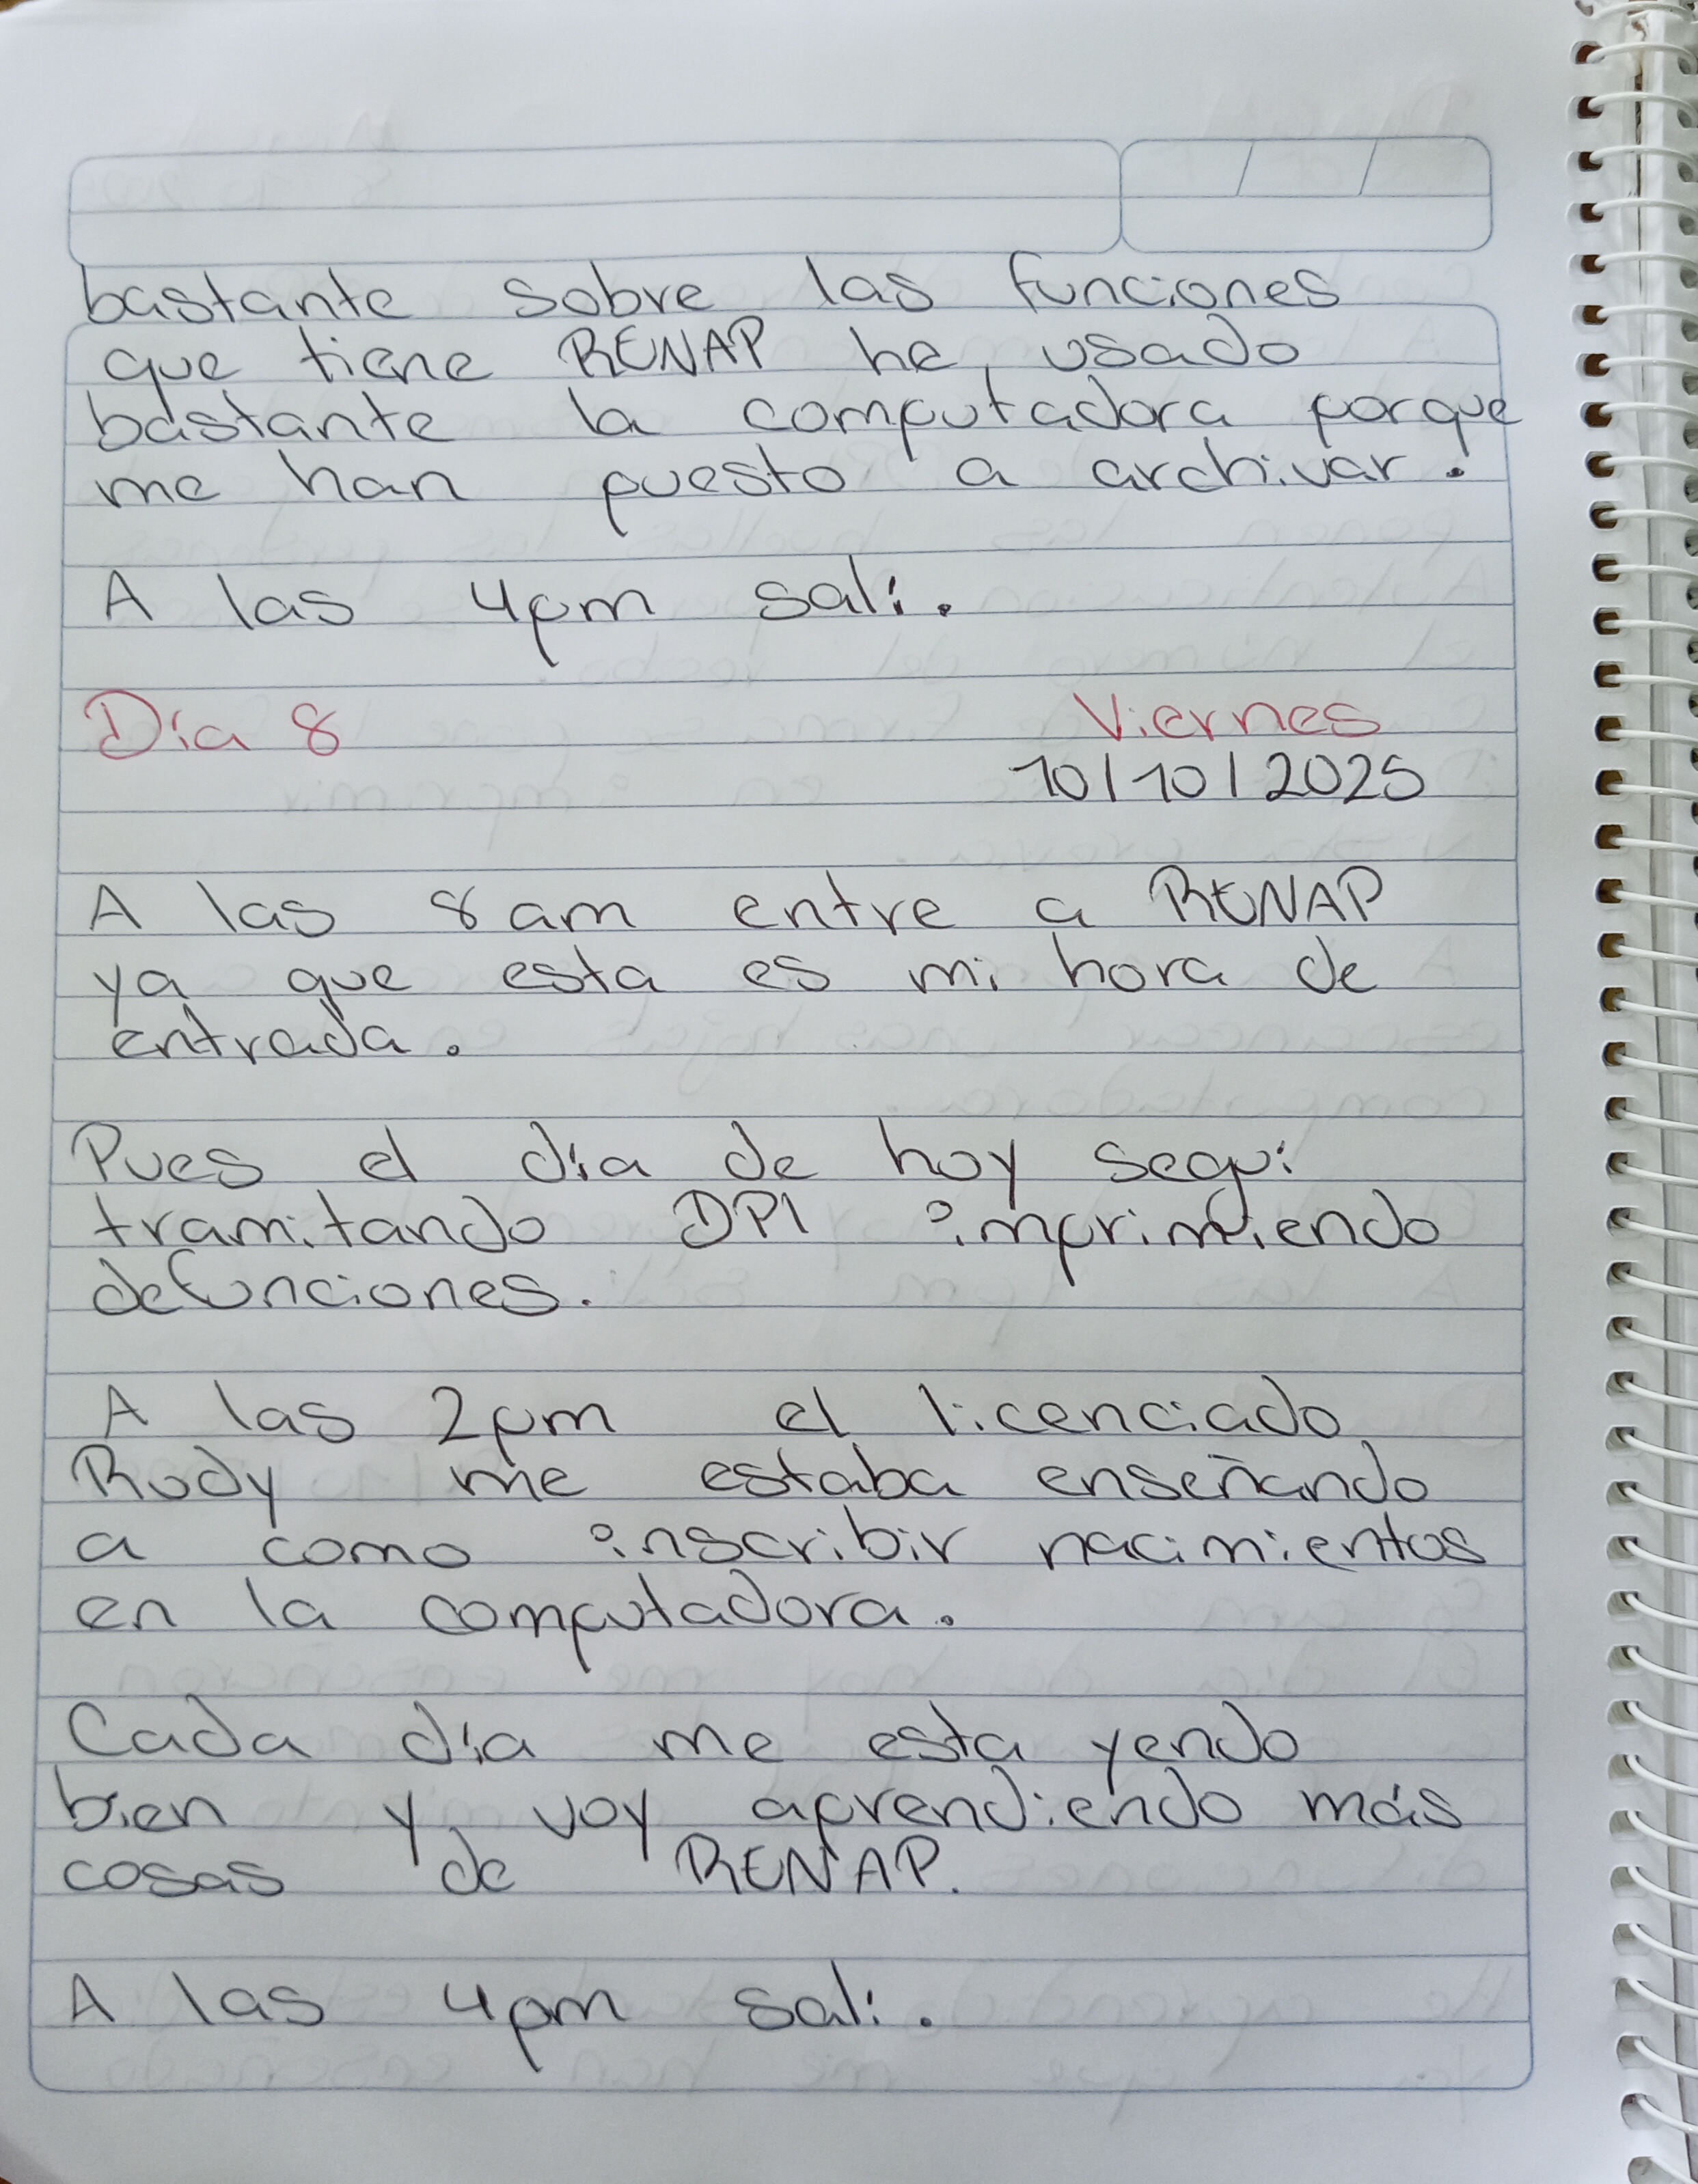 bastante sobre las funciones
que tiene RENAP he usado
bastante la computadora porque
me han puesto a archivar.
A las 4pm sali.
Día 8 Viernes
10/10/2025
A las 8 am entre a RENAP
ya que esta es mi hora de
entrada.
Pues el día de hoy segui
tramitando DPI imprimiendo
defunciones.
A las 2pm el licenciado
Rudy me estaba enseñando
a como inscribir nacimientos
en la computadora.
Cada día me esta yendo
bien y voy aprendiendo más
cosas de RENAP.
A las 4pm sali.